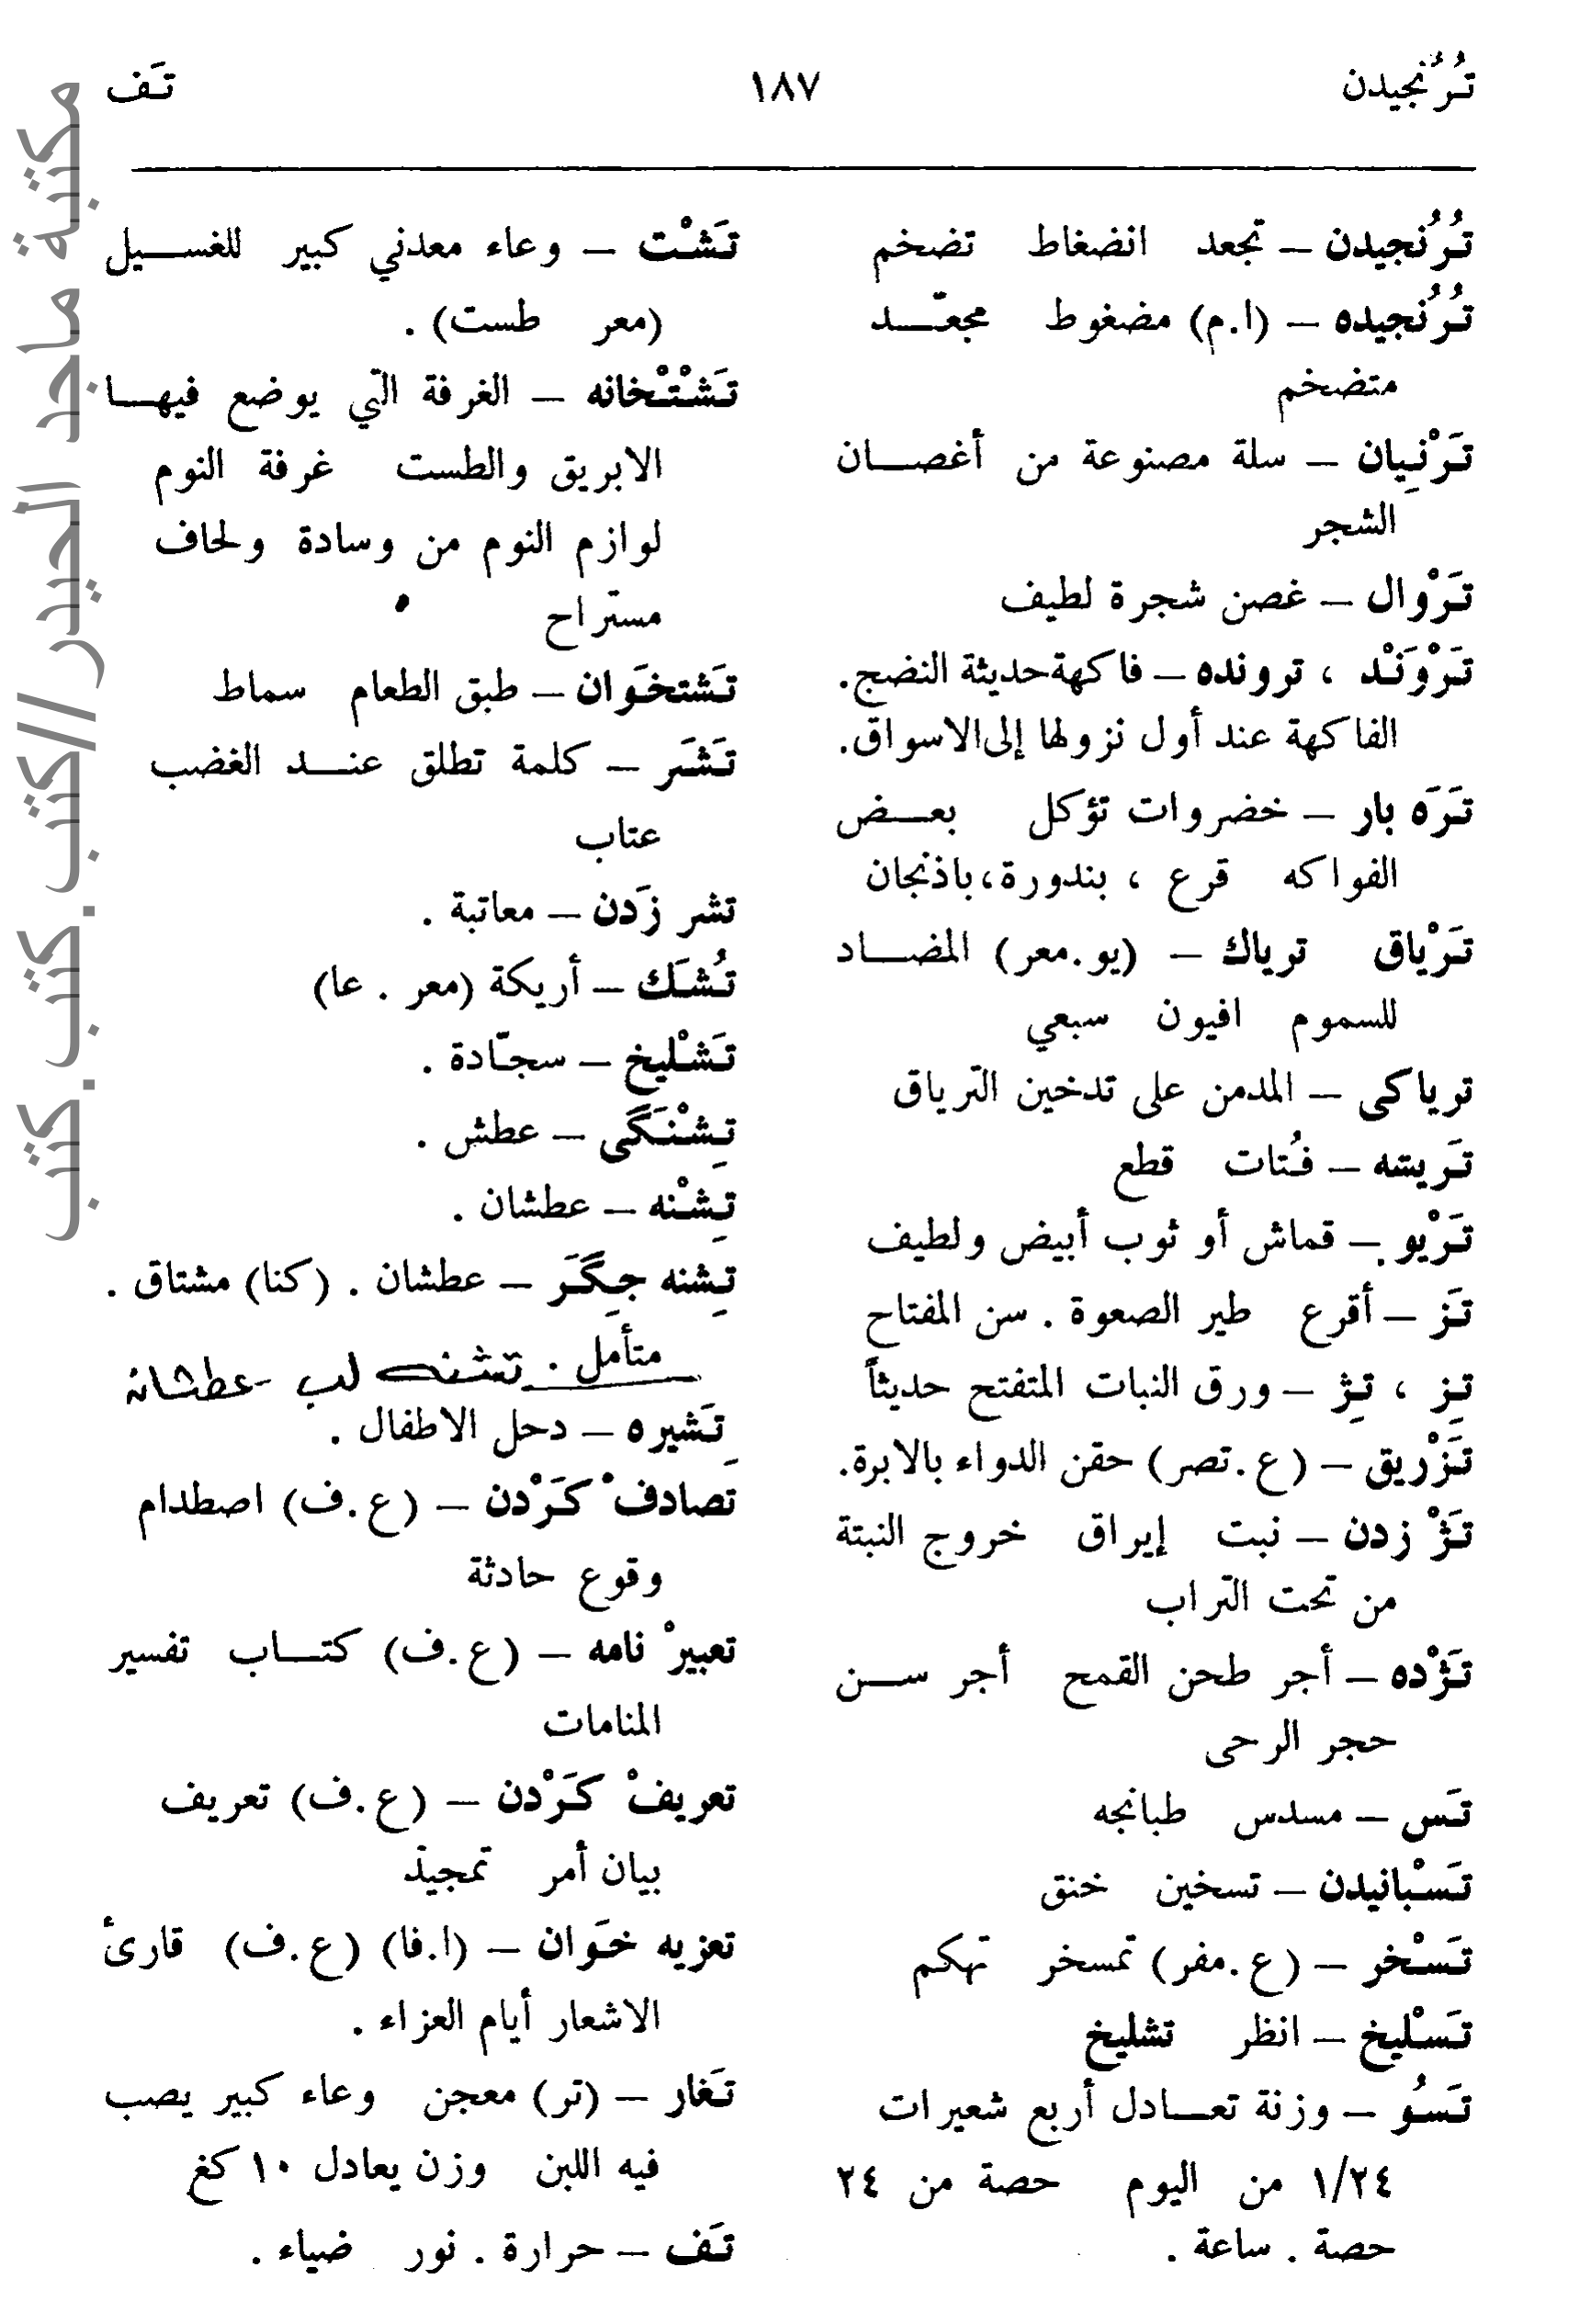 تُرُنجيدن ١٨٧ تَف
تُرُنجيدن – تجعد انضغاط تضخم
تُرُنجيده – (ا.م) مضغوط مجعّد
متضخم
تَرْنِيان – سلة مصنوعة من أغصان
الشجر
تَرْوال – غصن شجرة لطيف
تَرْوَنْد ، تروندە – فاكهة حديثة النضج.
الفاكهة عند أول نزولها إلى الاسواق.
تَرَه بار – خضروات تؤكل بعض
الفواكه قرع ، بندورة، باذنجان
تَرْياق ترياك – (يو.معر) المضاد
للسموم افيون سبعي
ترياكى – المدمن على تدخين الترياق
تَريشه – فُتات قطع
تَرْيو – قماش أو ثوب أبيض ولطيف
تَز – أقرع طير الصعوة . سن المفتاح
تِز ، تِژ – ورق النبات المتفتح حديثاً
تَزْريق – (ع.تصر) حقن الدواء بالابرة.
تَژْ زدن – نبت إيراق خروج النبتة
من تحت التراب
تَژْده – أجر طحن القمح أجر سن
حجر الرحى
تَس – مسدس طبانجه
تَسْبانيدن – تسخين خنق
تَسْخر – (ع.مفر) تمسخر تهكم
تَسْليخ – انظر تشليخ
تَسُو – وزنة تعادل أربع شعيرات
١/٢٤ من اليوم حصة من ٢٤
حصة . ساعة .
تَشْت – وعاء معدني كبير للغسيل
(معر طست) .
تَشْتْخانه – الغرفة التي يوضع فيها
الابريق والطست غرفة النوم
لوازم النوم من وسادة ولحاف
مستراح
تَشتخَوان – طبق الطعام سماط
تَشَر – كلمة تطلق عند الغضب
عتاب
تشر زَدن – معاتبة .
تُشَك – أريكة (معر . عا)
تَشْليخ – سجّادة .
تِشْنَگى – عطش .
تِشْنه – عطشان .
تِشنه جِگَر – عطشان . (كنا) مشتاق .
متأمل . تشنه لب - عطشان
تِشيره – دحل الاطفال .
تصادفْ كَرْدن – (ع.ف) اصطدام
وقوع حادثة
تعبيرْ نامه – (ع.ف) كتاب تفسير
المنامات
تعريفْ كَرْدن – (ع.ف) تعريف
بيان أمر تمجيد
تعزيه خَوان – (ا.فا) (ع.ف) قارئ
الاشعار أيام العزاء .
تَغار – (تر) معجن وعاء كبير يصب
فيه اللبن وزن يعادل ١٠ كغ
تَف – حرارة . نور ضياء .
مكتبة ماجد الحيدر // كتب.كتب.كتب